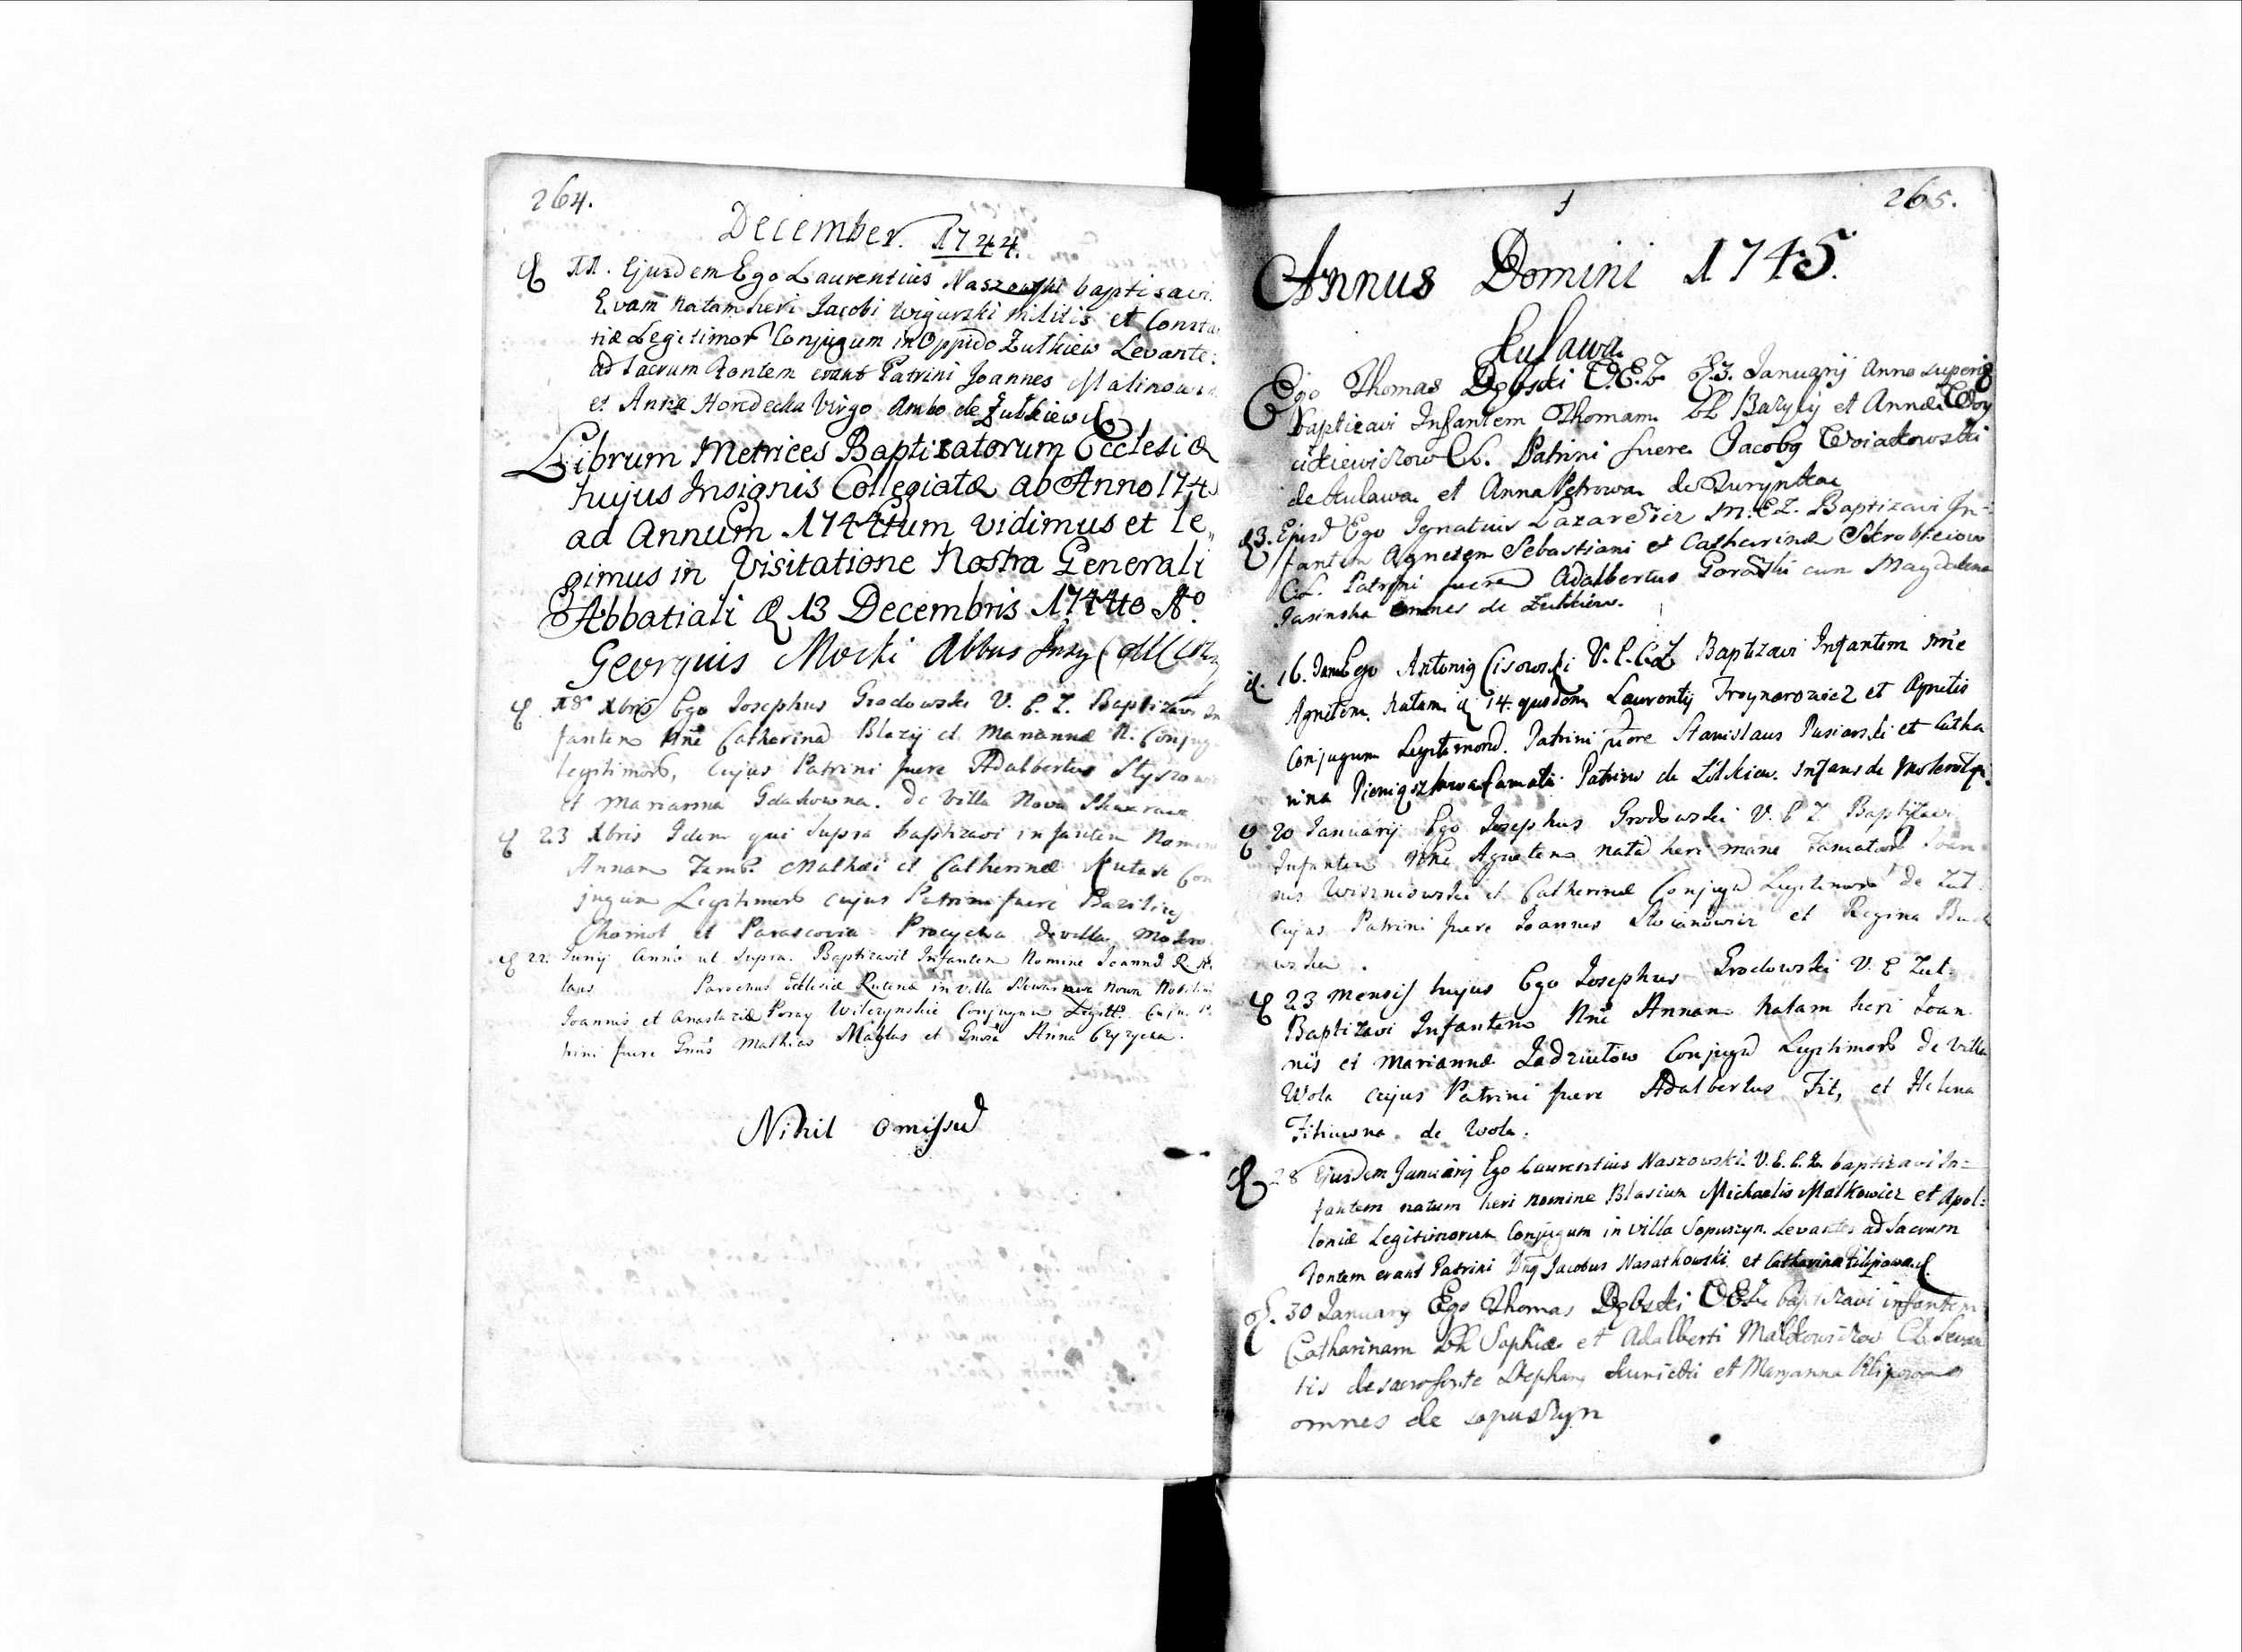 264.
December. 1744.
11. Ejusdem Ego Laurentius Naszowski baptisavi
Evam natam heri Jacobi Wigurski Militis et Consta
tiæ Legitimor Conjugum in Oppido Zulkiew Levante:
ad Sacrum Fontem erant Patrini Joannes Malinows
et Anna Horodecka Virgo Ambo de Zulkiew
Librum Metrices Baptizatorum Ecclesiæ
hujus Insignis Collegiatæ ab Anno 174
ad Annum 1744tum vidimus et le„
gimus in Visitatione Nostra Generali
Abbatiali d 13 Decembris 1744to Ao
Georgius Mocki Abbas
18 Xbris Ego Josephus Grodowski V. E. Z. Baptizavi In
fantem Nne Catherina Blazij et Mariannæ N. Conjug
legitimor, cujus Patrini fuere Adalbertus
et Marianna Gdakowna. de Villa Nova Skwarawa
23 Xbris Idem qui supra baptizavi infantem Nomine
Annam Famt. Mathæi et Catherinæ Con
jugum Legitimor cujus Patrini fuere Bazilius
Chomot et Parascovia Procycka de villa Mokro
22. Junij Anno ut Supra. Baptizavit Infantem Nomine Joannē R N.
laus Parochus Ecclesiæ Rutenæ in Villa Skwarzawa Nowa Nobilium
Joannis et Anastaziæ Poray Wilczynskie Conjugum Legitt. Cuju. P.
trini fuere Gnus Mathias Maglas et Gnosa Anna Czyzycka.
Nihil omissū
1
265.
Annus Domini 1745.
Kulawa
Ego Thomas Dębski V.E.Z d. 3. Januarij Anno superius
baptizavi Infantem Thomam LL Bazylij et Annæ Woy
cikiewiczow CL. Patrini fuere Jacobus Woiakowski
de Kulawa et Anna Petrowa de Turynka
13. Ejusd Ego Ignatius Lazarewicz M.E.Z. Baptizavi In-
fantem Agnetem Sebastiani et Catharinæ
CL. Patrini fuere Adalbertus Goralski cum Magdalena
Jasinska omnes de Zulkiew.
16. Jan Ego Antonius Cisowski V.E.C.Z Baptizavi Infantem nne
Agnetem. natam d 14. ejusdem Laurentij Troynarowicz et Agnetis
Conjugum Legitimord. Patrini fuere Stanislaus Pusiarski et Catha
rina famati Patrini de Zolkiew. Infans de
20 Januarij Ego Josephus Grodowski V. E Z Baptizavi
Infantem Nne Agnetem natā heri mane Famator Joan
nis Wiszniowski et Catherinæ Conjugū Legitimor de Zul.
cujus Patrini fuere Joannes Stoianowicz et Regina Buck
owska.
23 Mensis hujus Ego Josephus Grodowski V. E Zul.
Baptizavi Infantem Nne Annam Natam heri Joan
nis et Mariannæ Ladziutow Conjugū Legitimor de Villa
Wola cujus Patrini fuere Adalbertus Fit, et Helena
Fitiowna de Wola.
28 Ejusdem Januarij Ego Laurentius Naszowski V. E. C. Z. baptizavi In=
fantem natum heri nomine Blasium Michaelis Malkowicz et Apol:
loniæ Legitimorum Conjugum in Villa Sopuszyn. Levantes ad Sacrum
Fontem erant Patrini Dnq Jacobus Nasatkowski et Catharina Filipowa.
30 January Ego Thomas Dębski VEZ baptizavi infantem
Catharinam LL Sophiæ et Adalberti Malkowiczow CL. Levan
tis de sacro fonte Stephanus Kunicki et Maryanna Filipowa
omnes de sopuszyn